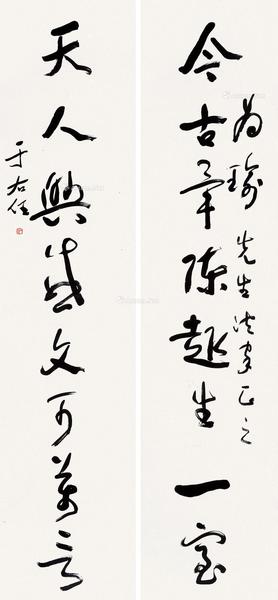 為瑜先生法家正之
今古畢陳趣生一室
天人興感文可萬言
于右任